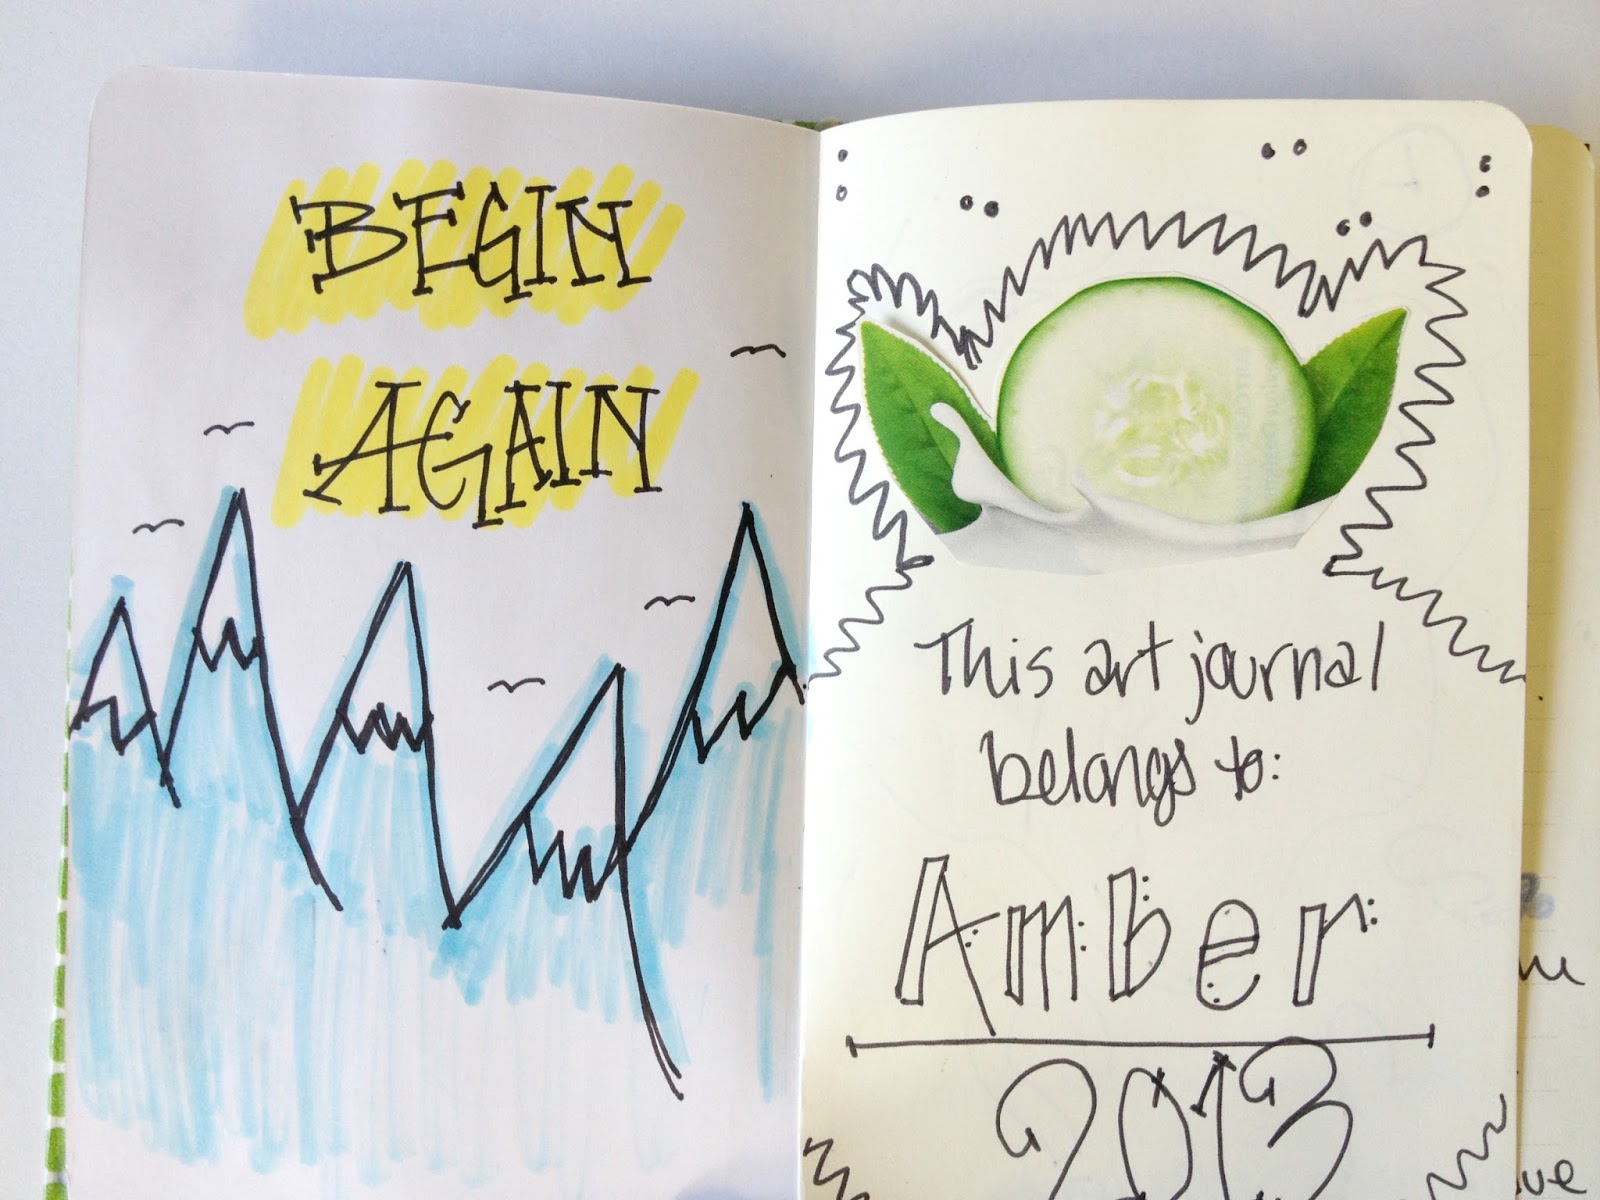 BEGIN
AGAIN
This art journal
belongs to:
Amber
2013